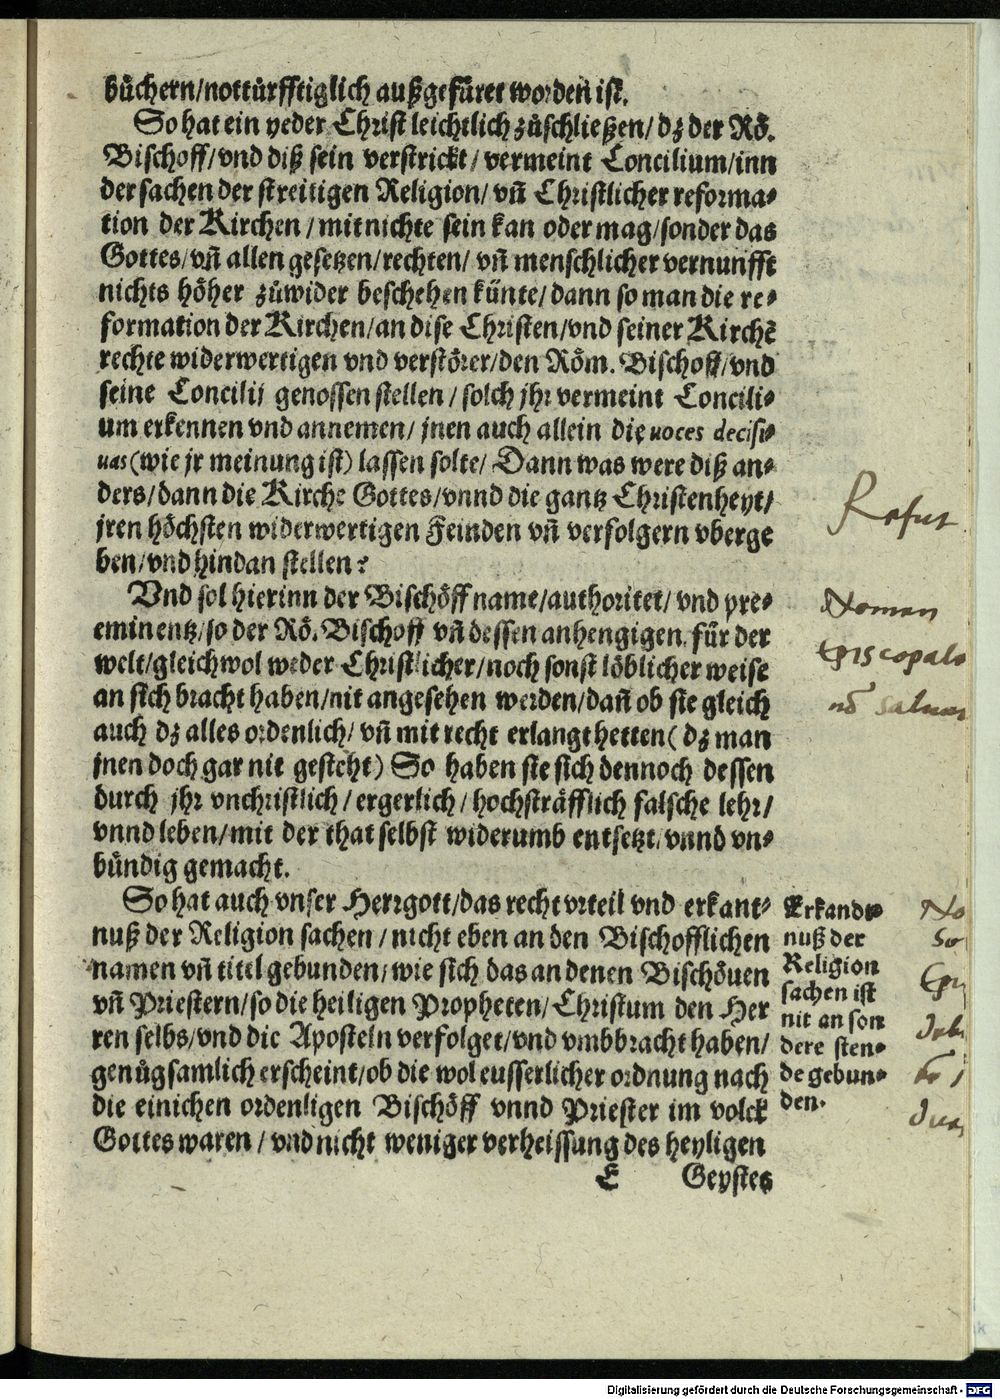 büchern/nottürfftiglich außgefüret worden ist.
So hat ein yeder Christ leichtlich zůschließen/ dz der Rö.
Bischoff/vnd diß sein verstrickt/ vermeint Concilium/inn
der sachen der streitigen Religion/ vñ Christlicher reforma⸗
tion der Kirchen/ mit nichte sein kan oder mag/sonder das
Gottes/vñ allen gesetzen/rechten/ vñ menschlicher vernunfft
nichts höher zůwider beschehen künte/ dann so man die re⸗
formation der Kirchen/an dise Christen/vnd seiner Kirchẽ
rechte widerwertigen vnd verstörer/den Röm. Bischoff/vnd
seine Concilij genossen stellen/ solch jhr vermeint Concili⸗
um erkennen vnd annemen/ jnen auch allein die uoces decisi⸗
uas (wie jr meinung ist) lassen solte/ Dann was were diß an⸗
ders/dann die Kirche Gottes/vnnd die gantz Christenheyt/
jren höchsten widerwertigen Feinden vñ verfolgern vberge
ben/vnd hindan stellen?
Vnd sol hierinn der Bischöff name/authoritet/ vnd pre⸗
eminentz/so der Rö. Bischoff vñ dessen anhengigen für der
welt/gleichwol weder Christlicher/noch sonst löblicher weise
an sich bracht haben/nit angesehen werden/dañ ob sie gleich
auch dz alles ordenlich/ vñ mit recht erlangt hetten( dz man
jnen doch gar nit gesteht) So haben sie sich dennoch dessen
durch jhr vnchristlich/ ergerlich/ hochsträfflich falsche lehr/
vnnd leben/mit der that selbst widerumb entsetzt/ vnnd vn⸗
bündig gemacht.
So hat auch vnser Herrgott/das recht vrteil vnd erkant⸗
nuß der Religion sachen/ nicht eben an den Bischofflichen
namen vñ titel gebunden/ wie sich das an denen Bischöuen
vñ Priestern/so die heiligen Propheten/Christum den Her
ren selbs/vnd die Aposteln verfolget/vnd vmbbracht haben/
genůgsamlich erscheint/ob die wol eusserlicher ordnung nach
die einichen ordenligen Bischöff vnnd Priester im volck
Gottes waren/ vnd nicht weniger verheissung des heyligen
E Geystes
Refut
Nomen
Episcopale
nõ
Erkandt⸗
nuß der
Religion
sachen ist
nit an son
dere sten⸗
de gebun⸗
den.
No
so
Digitalisierung gefördert durch die Deutsche Forschungsgemeinschaft - DFG